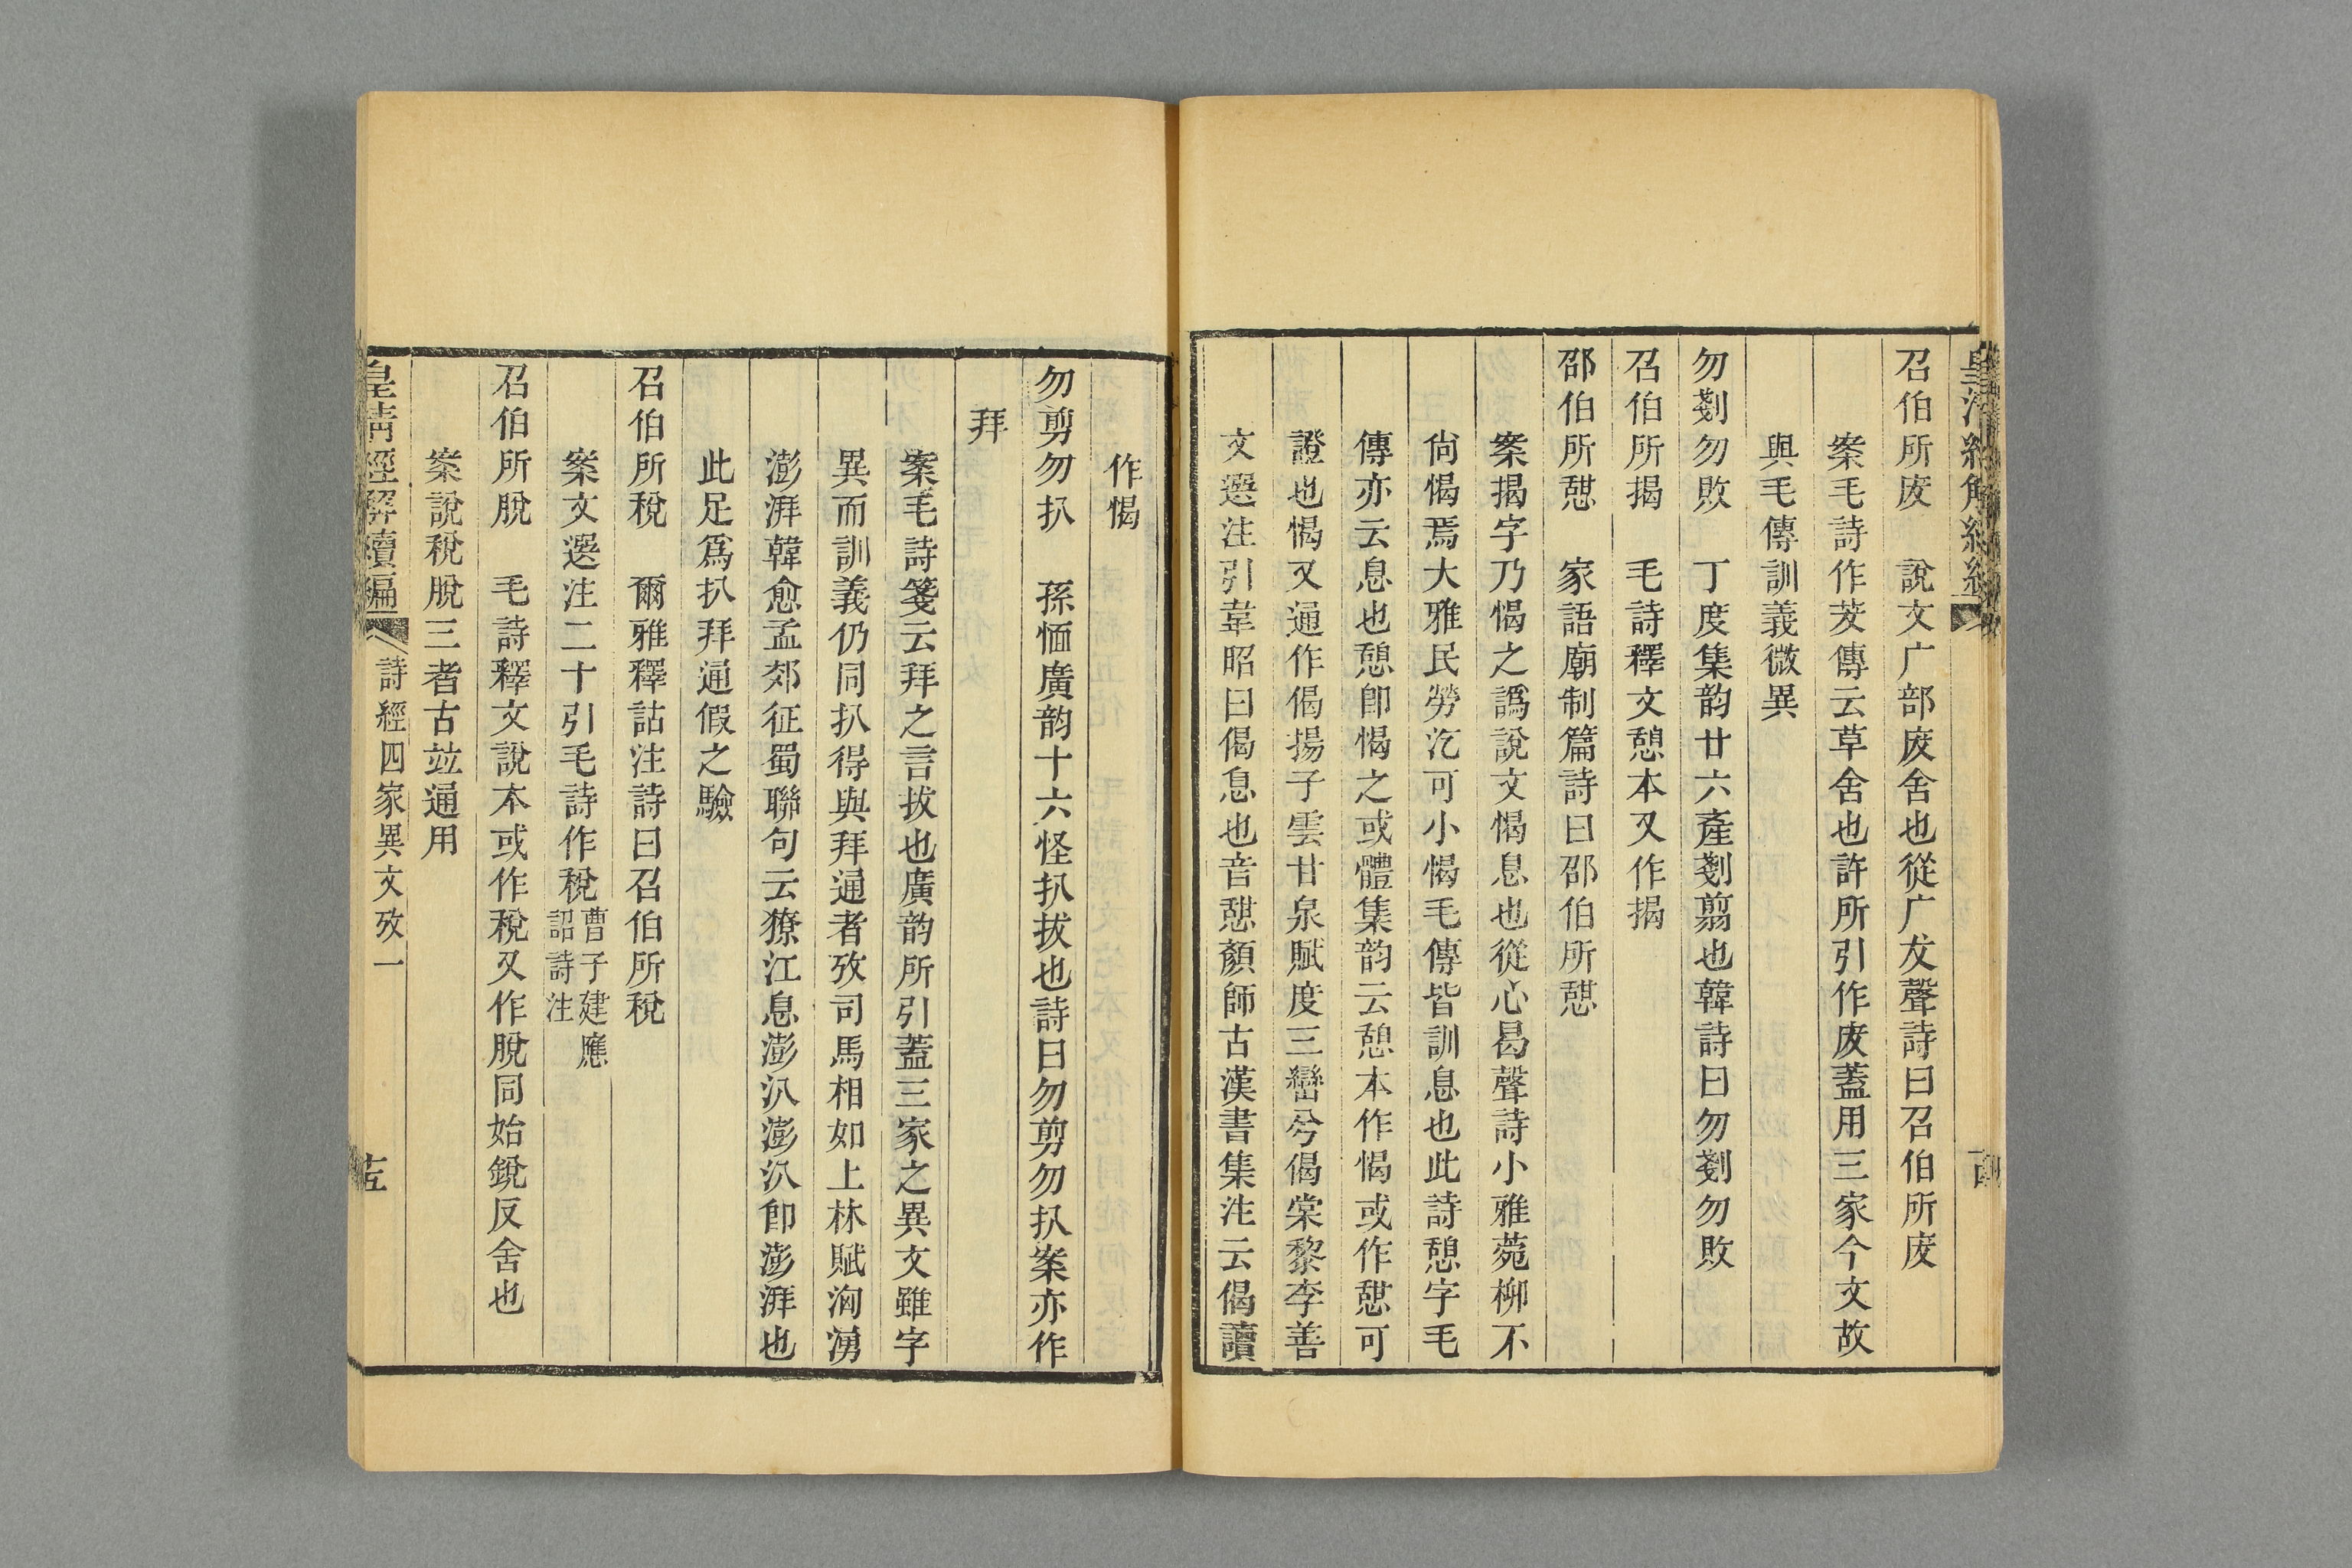 皇清經解續編
召伯所废　說文广部废舍也從广犮聲詩曰召伯所废
案毛詩作茇傳云草舍也許所引作废蓋用三家今文故
與毛傳訓義微異
勿剗勿敗　丁度集韵廿六產剗翦也韓詩曰勿剗勿敗
召伯所揭　毛詩釋文憩本又作揭
邵伯所憇　家語廟制篇詩曰邵伯所憇
案揭字乃愒之譌說文愒息也從心曷聲詩小雅菀柳不
尙愒焉大雅民勞汔可小愒毛傳皆訓息也此詩憩字毛
傳亦云息也憩卽愒之或體集韵云憩本作愒或作憇可
證也愒又通作偈揚子雲甘泉賦度三巒兮偈棠黎李善
文選注引韋昭曰偈息也音憇顏師古漢書集注云偈讀
作愒
勿剪勿扒　孫愐廣韵十六怪扒拔也詩曰勿剪勿扒案亦作
拜
案毛詩箋云拜之言拔也廣韵所引蓋三家之異文雖字
異而訓義仍同扒得與拜通者攷司馬相如上林賦洶湧
澎湃韓愈孟郊征蜀聯句云獠江息澎汃澎汃卽澎湃也
此足爲扒拜通假之驗
召伯所稅　爾雅釋詁注詩曰召伯所稅
案文選注二十引毛詩作稅曹子建應
詔詩注
召伯所脫　毛詩釋文說本或作稅又作脫同始銳反舍也
案說稅脫三者古竝通用
皇清經解續編　詩經四家異文攷一